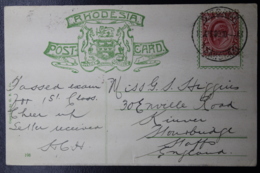 RHODESIA
POST CARD
Passed exam
for 1st Class.
Cheer up
Letter received
A.C.H
Miss G. S. Higgins
30 Enville Road
Kinver
Stourbridge
Staffs
England.